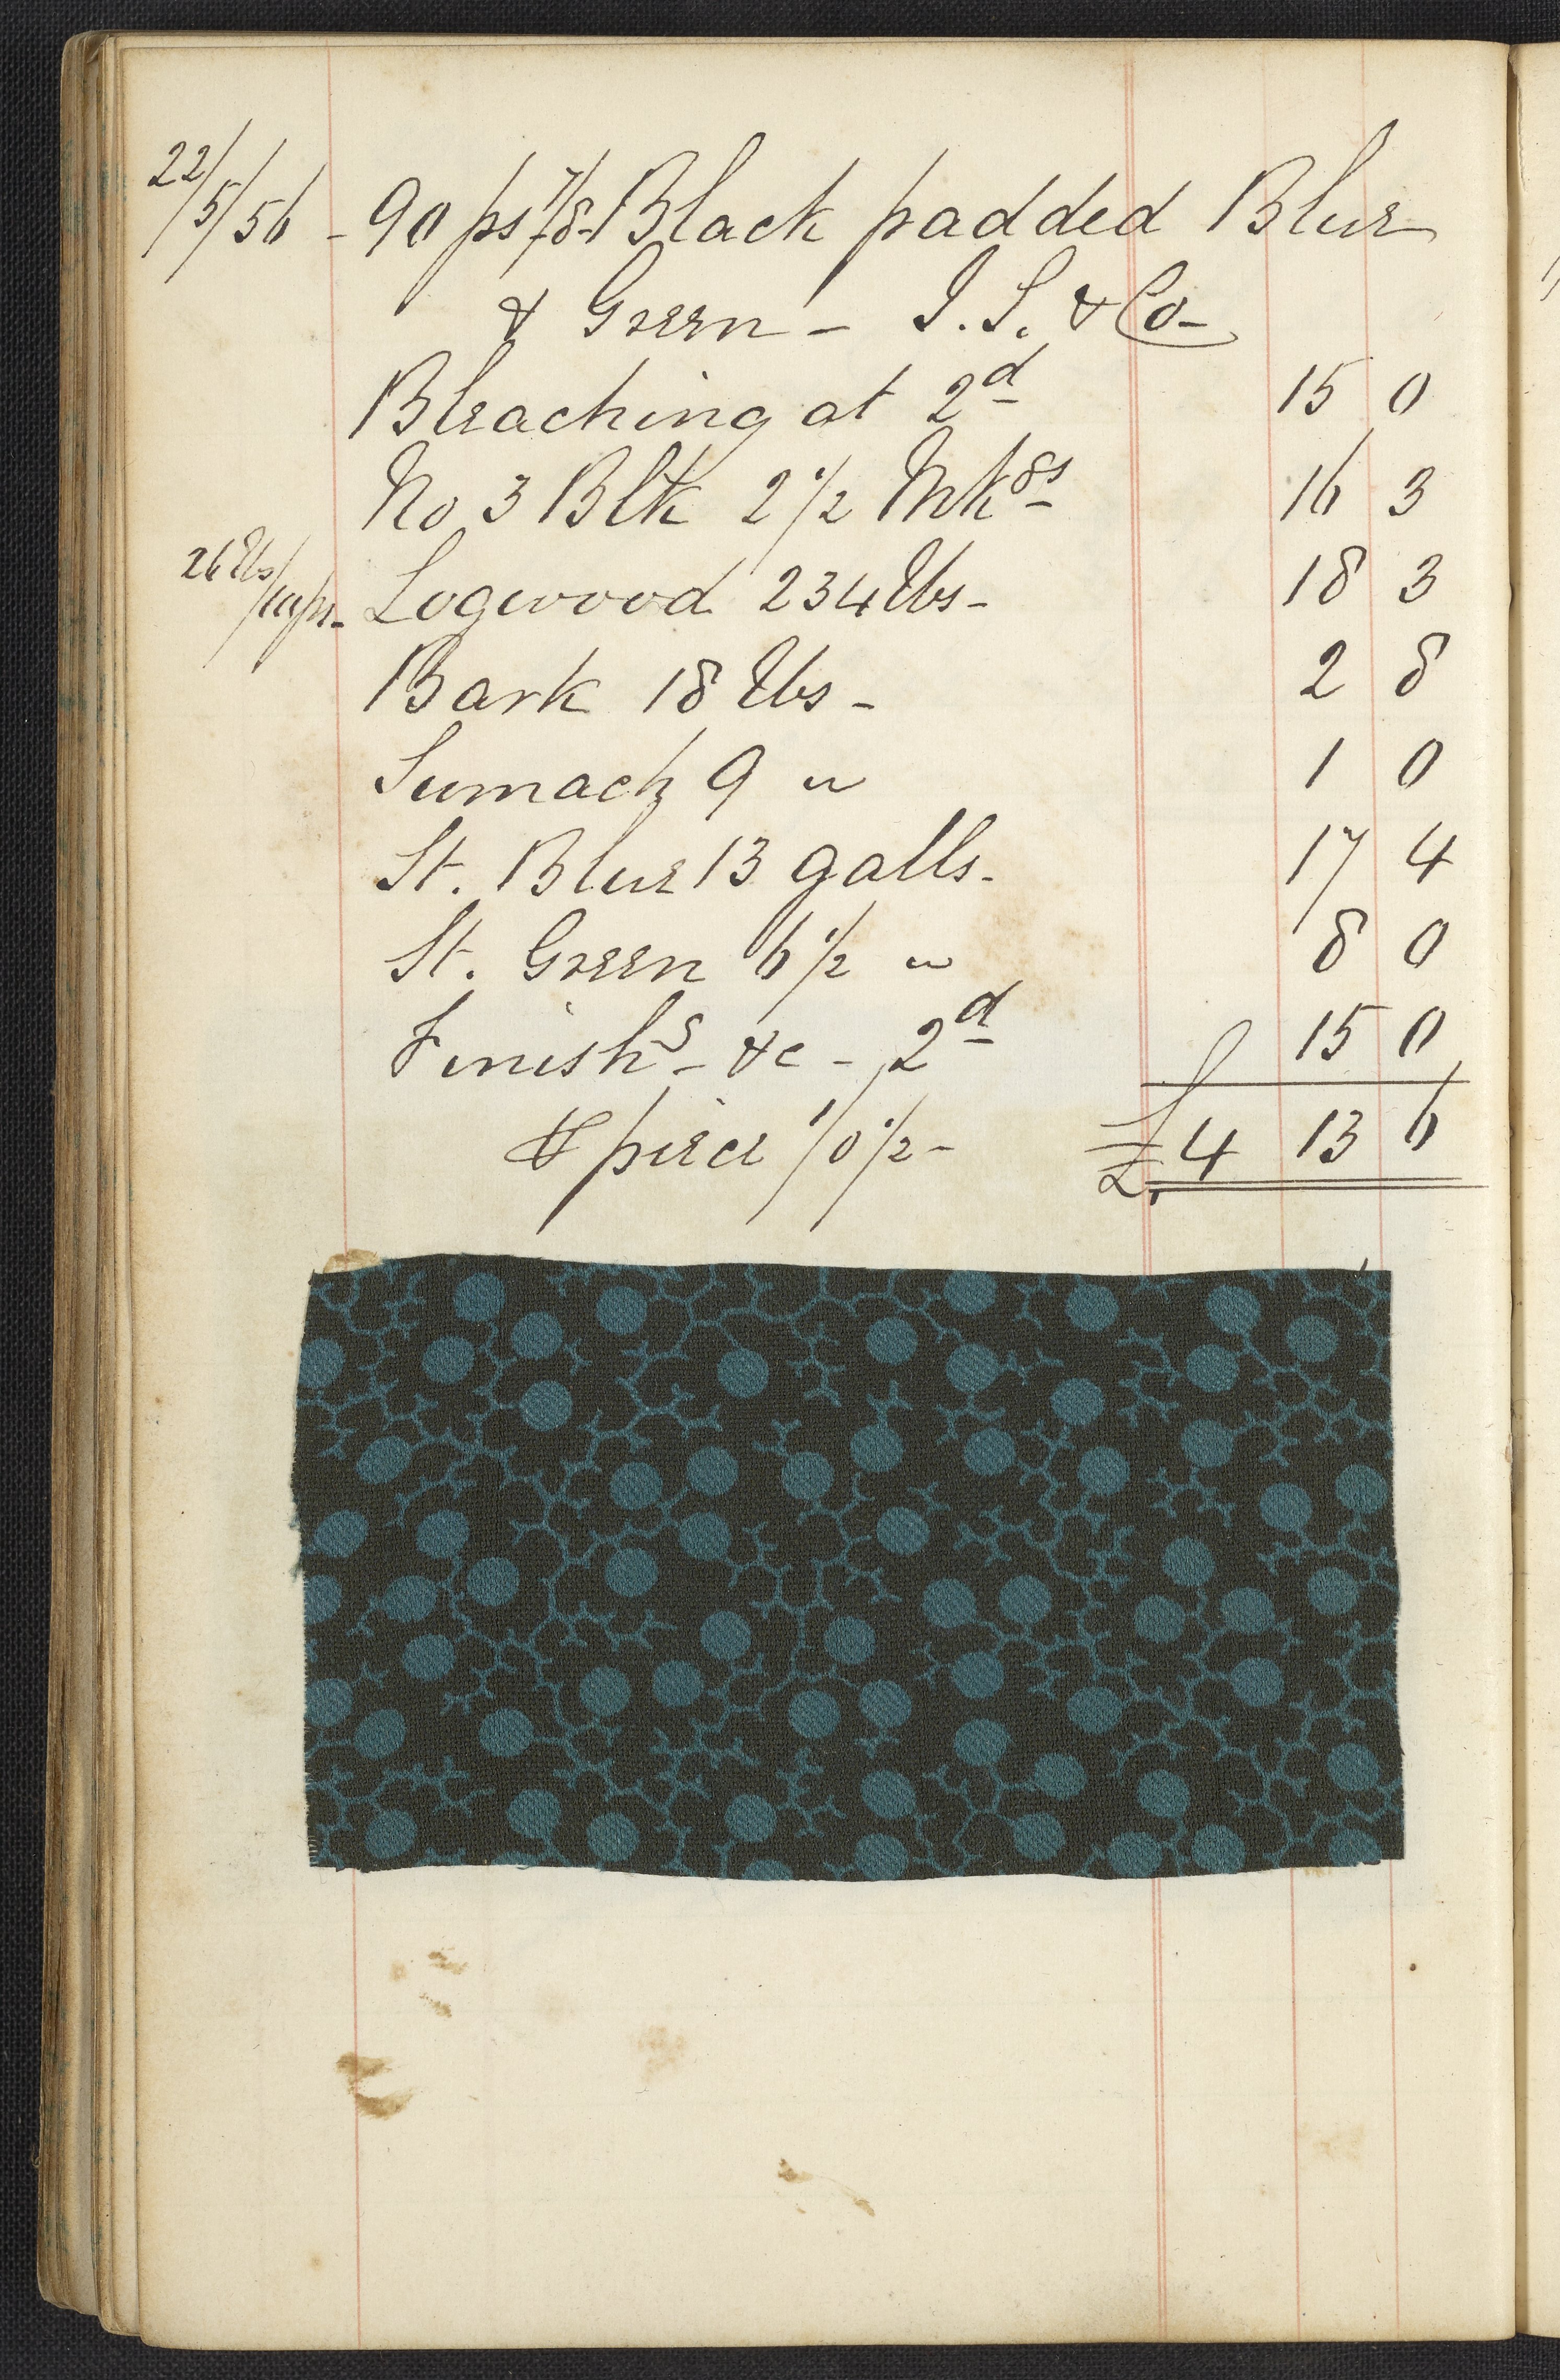 22/5/56 - 90 ps 7/8 Black padded Blue
& Green - J. S. & Co-
Bleaching at 2d 15 0
No 3 Blk 2 1/2 Mks 16 3
26 lbs/10ps - Logwood 234 lbs - 18 3
Bark 18 lbs - 2 8
Sumach 9 " 1 0
St. Blue 13 galls - 17 4
St. Green 6 1/2 " 8 0
Finishg - &c - 2d 15 0
⅌ piece 1/0 1/2 - £ 4 13 6